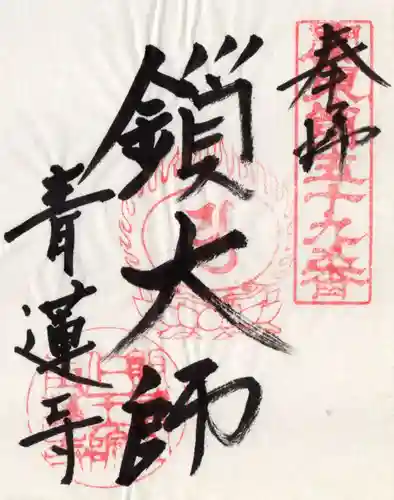 奉拝
関東第五十九番
鎖大師
青蓮寺